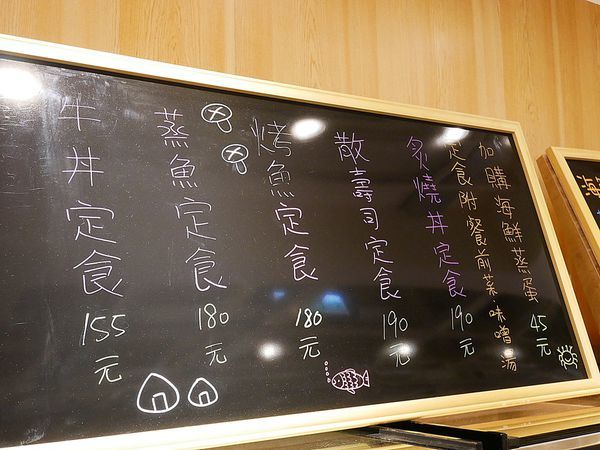 加購海鮮蒸蛋 45元
定食附餐前菜.味噌湯
炙燒丼定食 190元
散壽司定食 190元
烤魚定食 180元
蒸魚定食 180元
牛丼定食 155元
海